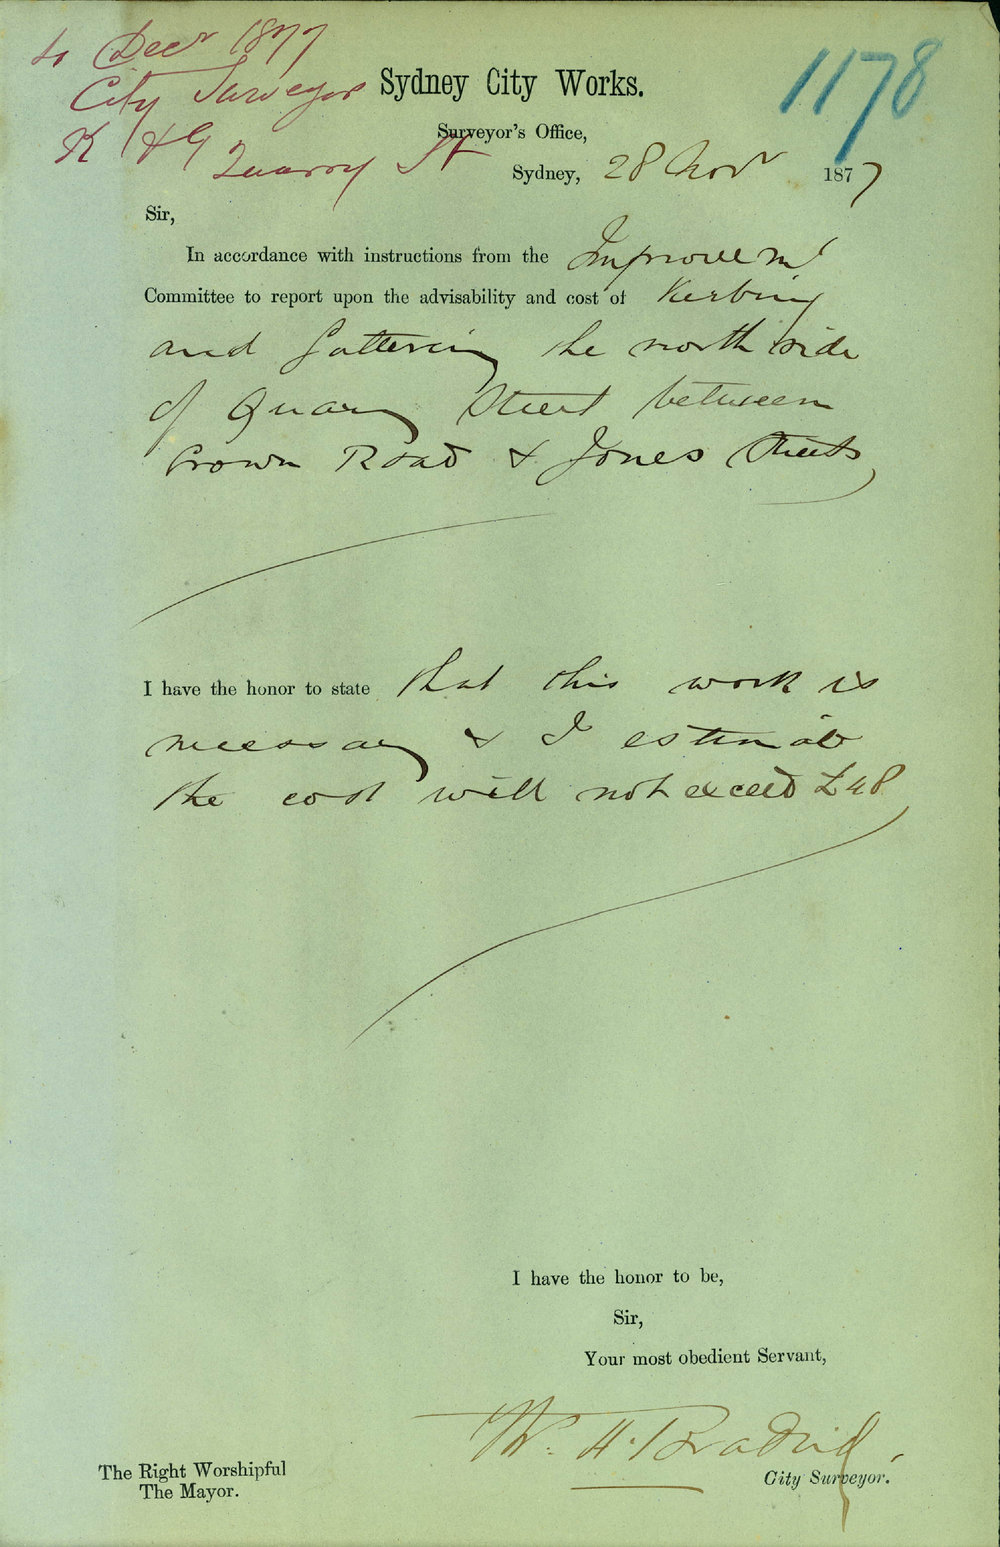 Decr 1877
City Surveyor
K & G
Quarry St
1178
Sydney City Works.
Surveyor's Office,
Sydney, 28 Novr 1877
Sir,
In accordance with instructions from the Improvemt
Committee to report upon the advisability and cost of Kerbing
and Guttering the north side
of Quarry Street between
Crown Road & Jones Streets
I have the honor to state that this work is
necessary & I estimate
the cost will not exceed £48
I have the honor to be,
Sir,
Your most obedient Servant,
W. H.
City Surveyor.
The Right Worshipful
The Mayor.